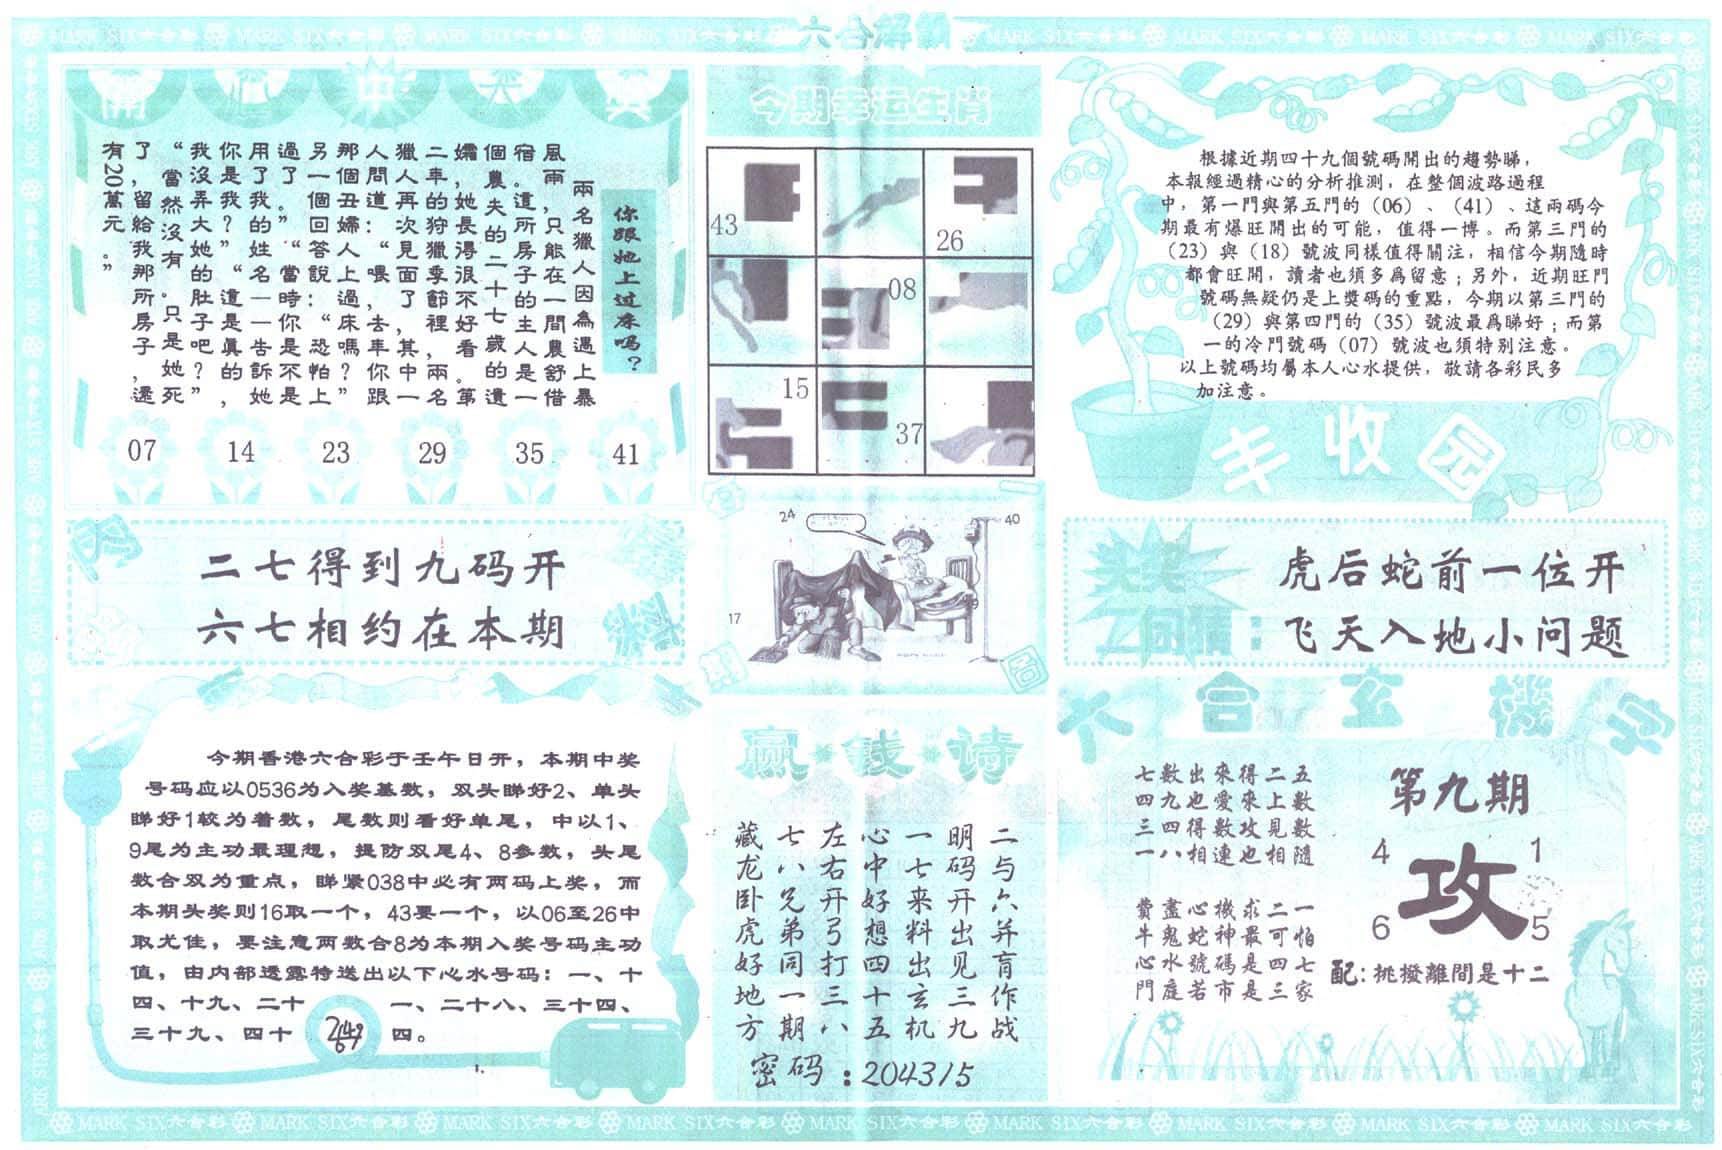 六合解霸
開心中大獎
你跟她上过床吗？
兩名獵人因為遇上暴
風雨，只能在一間農舒借
宿。這所房子的主人是一
個農夫的二十七歲的遺
孀，她長得很不好看。第
二年的狩獵季節裡，兩名
獵人再次見面了，其中一
人問道：“喂，去年你跟
那個丑婦人上過床嗎？”
另一個回答說：“恐怕上
過了。”“當時你是不是
用了我的姓名——告訴她
你是我？”“這是真的，
我沒弄大她的肚子吧？”
“當然沒有。只是她死
了，留給我那所房子，還
有20萬元。”
07 14 23 29 35 41
二七得到九码开
六七相约在本期
今期香港六合彩于壬午日开，本期中奖
号码应以0536为入奖基数，双头睇好2、单头
睇好1较为着数，尾数则看好单尾，中以1、
9尾为主功最理想，提防双尾4、8参数，头尾
数合双为重点，睇紧038中必有两码上奖，而
本期头奖则16取一个，43要一个，以06至26中
取尤佳，要注意两数合8为本期入奖号码主功
值，由内部透露特送出以下心水号码：一、十
四、十九、二十一、二十八、三十四、
三十九、四十四。
今期幸运生肖
43
26
08
15
37
24
40
17
赢钱诗
二与六并肓作战
明码开出见三九
一七来料出玄机
心中好想四十五
左右开弓打三八
七八兄弟同一期
藏龙卧虎好地方
密码：204315
根據近期四十九個號碼開出的趨勢睇，
本報經過精心的分析推測，在整個波路過程
中，第一門與第五門的（06）、（41）、這兩碼今
期最有爆旺開出的可能，值得一博。而第三門的
（23）與（18）號波同樣值得關注，相信今期隨時
都會旺開，讀者也須多爲留意；另外，近期旺門
號碼無疑仍是上獎碼的重點，今期以第三門的
（29）與第四門的（35）號波最爲睇好；而第
一的冷門號碼（07）號波也須特別注意。
以上號碼均屬本人心水提供，敬請各彩民多
加注意。
丰收园
头奖
虎后蛇前一位开
飞天入地小问题
六合玄機
七數出來得二五
四九也愛來上數
三四得數攻見數
一八相連也相隨
費盡心機求二一
牛鬼蛇神最可怕
心水號碼是四七
門庭若市是三家
第九期
4 1
攻
6 5
配：挑撥離間是十二
MARK SIX六合彩